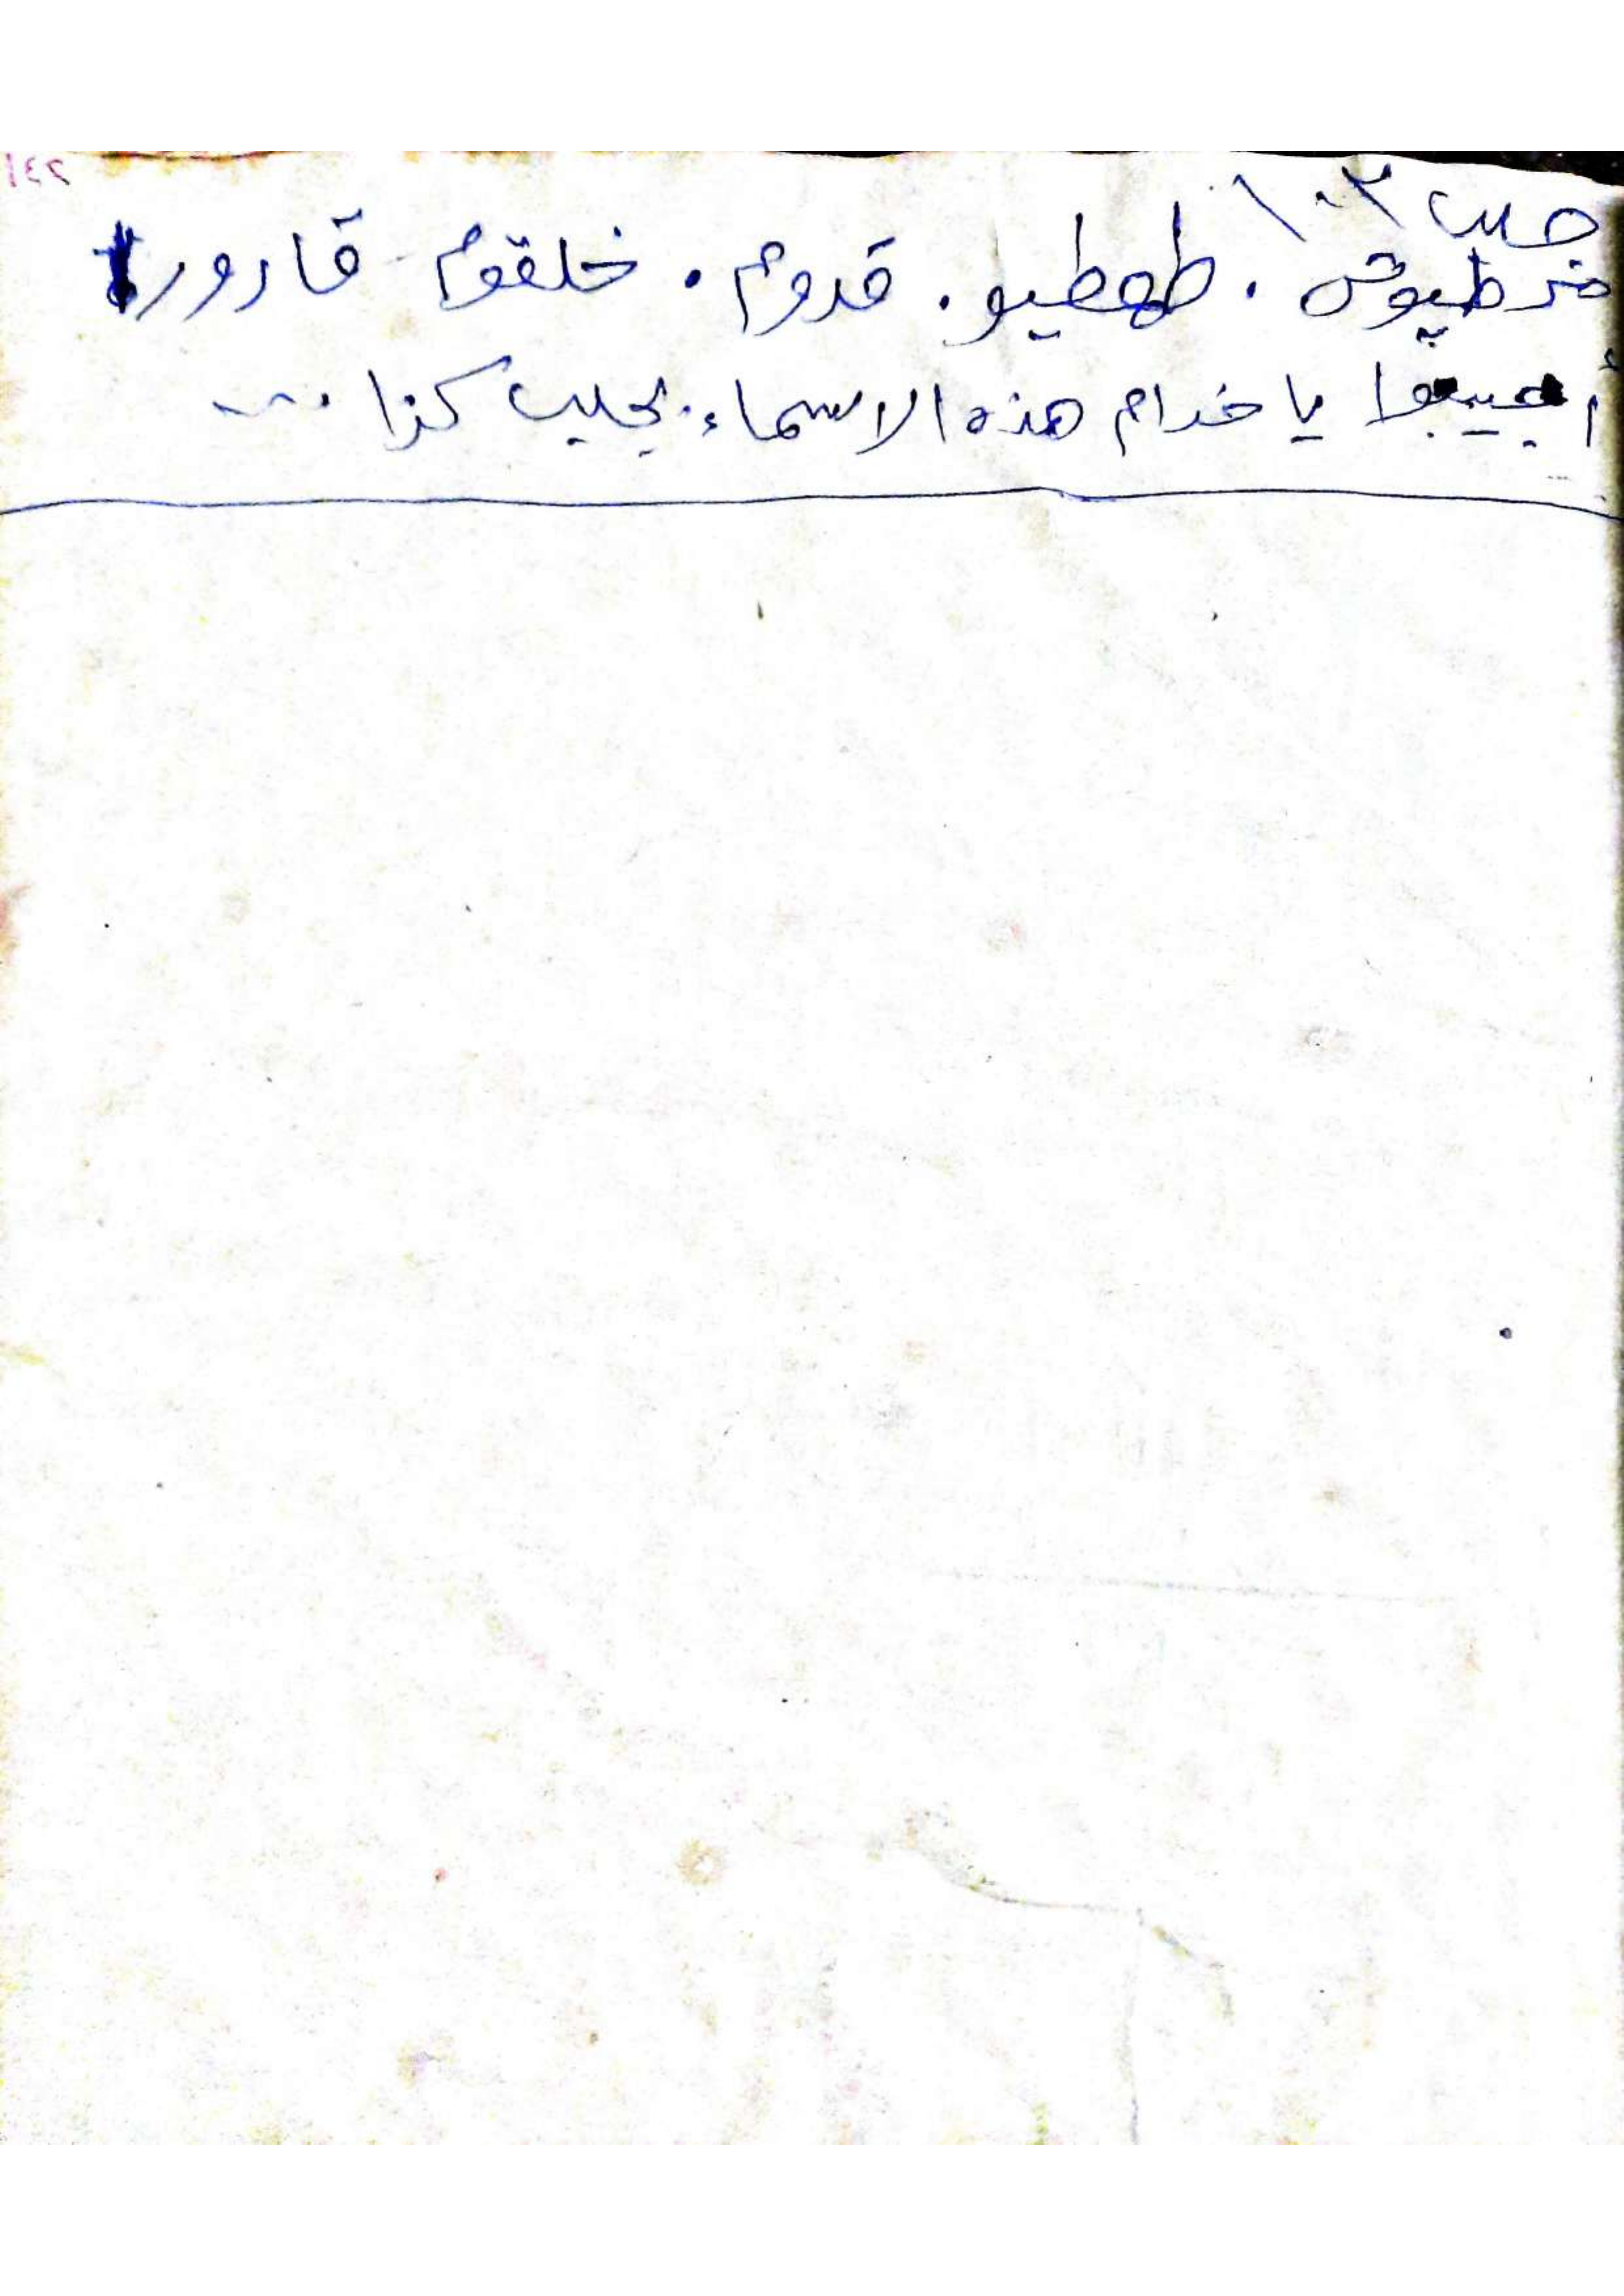 خرطيوش . طهطيو . قدوم . خلقوم - قارورا
أجيبوا يا خدام هذه الاسماء بجلب كذا ...